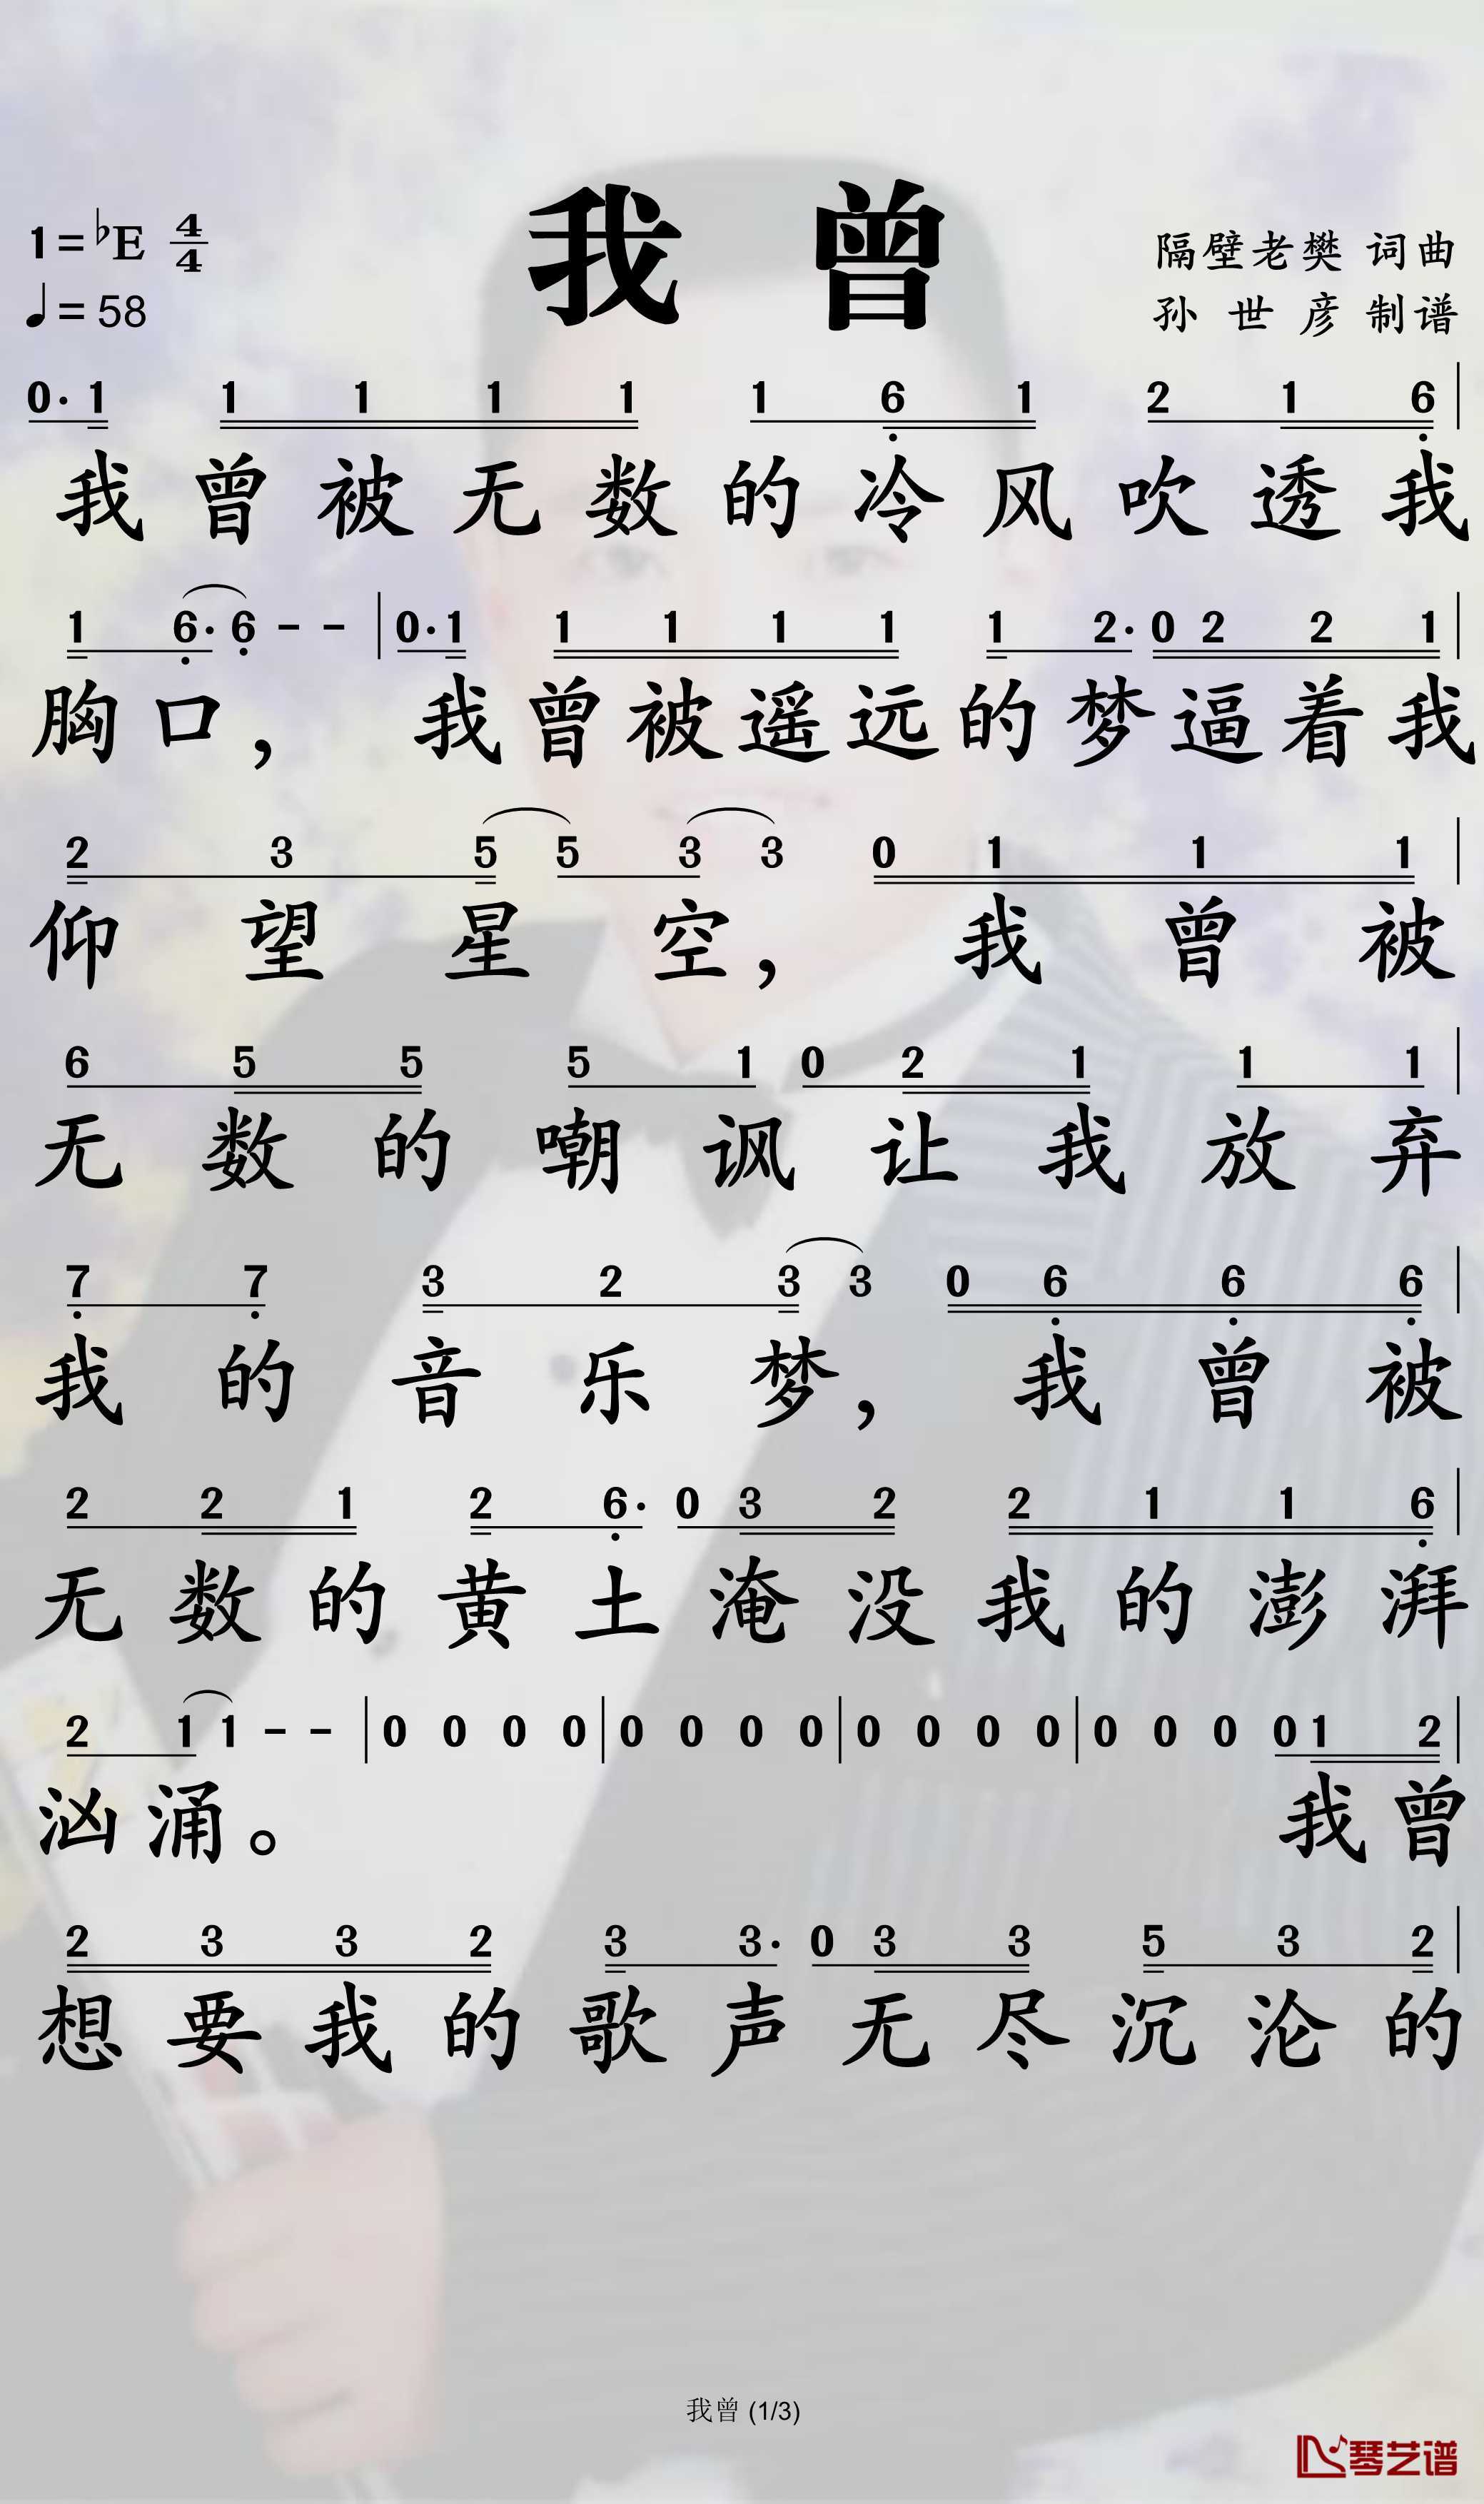 我 曾
1=♭E 4/4
♩=58
隔壁老樊 词曲
孙 世 彦 制谱
0· 1 1 1 1 1 1 6 1 2 1 6 |
我曾被无数的冷风吹透我
1 6· 6 - - | 0· 1 1 1 1 1 1 2· 0 2 2 1 |
胸口， 我曾被遥远的梦逼着我
2 3 5 5 3 3 0 1 1 1 |
仰望星空， 我曾被
6 5 5 5 1 0 2 1 1 1 |
无数的嘲讽让我放弃
7 7 3 2 3 3 0 6 6 6 |
我的音乐梦， 我曾被
2 2 1 2 6· 0 3 2 2 1 1 6 |
无数的黄土淹没我的澎湃
2 1 1 - - | 0 0 0 0 | 0 0 0 0 | 0 0 0 0 | 0 0 0 0 1 2 |
汹涌。 我曾
2 3 3 2 3 3· 0 3 3 5 3 2 |
想要我的歌声无尽沉沦的
我曾 (1/3)
琴艺谱